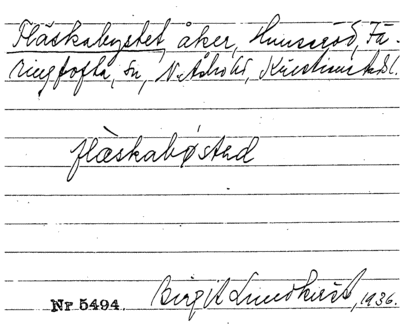 Fläskabystet, åker, Hunseröd, Fä-
ringtofta, sn, N. Åsbo hd, Kristianst. l.
flæskabøstəd
Nr 5494. Birgit Lundkvist, 1936.